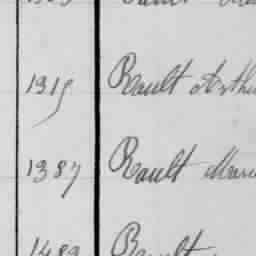 1315 Rault Arthu
1387 Rault Marie
1483 Rault